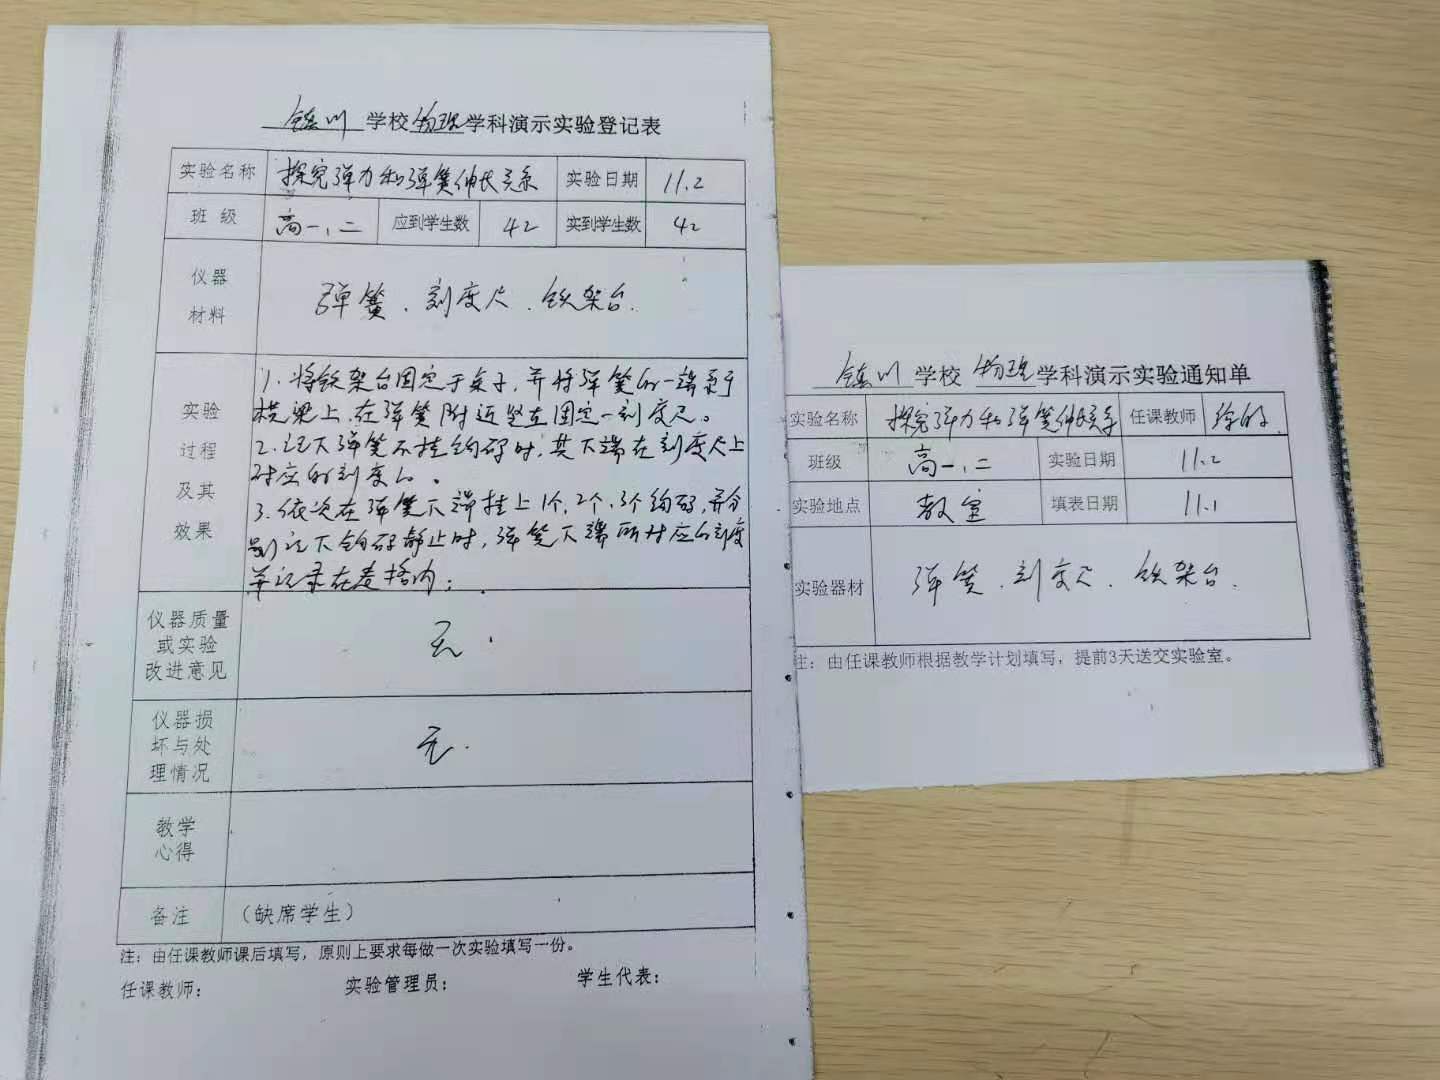 镇川 学校物理学科演示实验登记表
实验名称 探究弹力和弹簧伸长关系 实验日期 11.2
班 级 高一、二 应到学生数 42 实到学生数 42
仪器
材料
弹簧、刻度尺、铁架台.
实验
过程
及其
效果
1.将铁架台固定于桌子,并将弹簧的一端系于
横梁上,在弹簧附近竖直固定一刻度尺。
2.记下弹簧不挂钩码时,其下端在刻度尺上
对应的刻度l₀。
3.依次在弹簧下端挂上1个,2个,3个钩码,并分
别记下钩码静止时,弹簧下端所对应的刻度
并记录在表格内;
仪器质量
或实验
改进意见
无.
仪器损
坏与处
理情况
无.
教学
心得
备注 (缺席学生)
注:由任课教师课后填写,原则上要求每做一次实验填写一份。
任课教师: 实验管理员: 学生代表:
镇川 学校 物理 学科演示实验通知单
实验名称 探究弹力和弹簧伸长关系 任课教师
班级 高一、二 实验日期 11.2
实验地点 教室 填表日期 11.1
实验器材 弹簧、刻度尺、铁架台.
注:由任课教师根据教学计划填写,提前3天送交实验室。